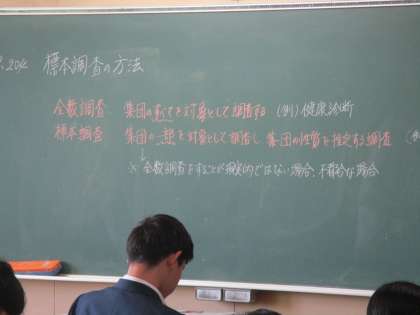 P.204 標本調査の方法
全数調査 集団のすべてを対象として調査する (例)健康診断
標本調査 集団の一部を対象として調査し 集団の性質を推定する調査
↓
※ 全数調査をすることが現実的ではない場合、不都合な場合